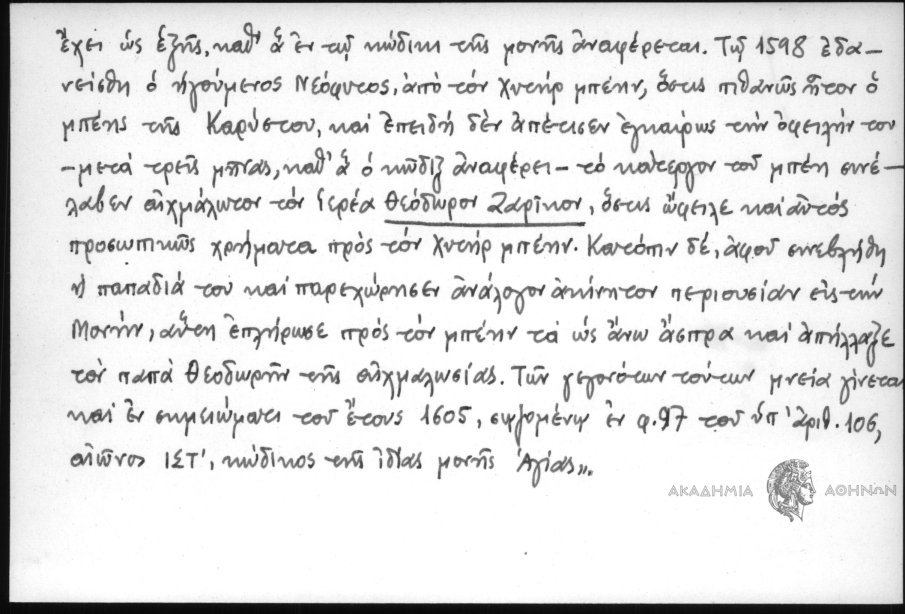 ἔχει ὡς ἑξῆς, καθ' ἃ ἐν τῷ κώδικι τῆς μονῆς ἀναφέρεται. Τῷ 1598 ἐδα-
νείσθη ὁ ἡγούμενος Νεόφυτος, ἀπὸ τὸν Χυτὴρ μπέην, ὅστις πιθανῶς ἦτον ὁ
μπέης τῆς Καρύστου, καὶ ἐπειδὴ δὲν ἀπέτισεν ἐγκαίρως τὴν ὀφειλήν του
-μετὰ τρεῖς μῆνας, καθ' ἃ ὁ κῶδιξ ἀναφέρει- τὸ κάτεργον τοῦ μπέη συνέ-
λαβεν αἰχμάλωτον τὸν ἱερέα Θεόδωρον Ζαρῖκον, ὅστις ὤφειλε καὶ αὐτὸς
προσωπικῶς χρήματα πρὸς τὸν Χυτὴρ μπέην. Κατόπιν δέ, ἀφοῦ συνεβλήθη
ἡ παπαδιά του καὶ παρεχώρησεν ἀνάλογον ἀκίνητον περιουσίαν εἰς τὴν
Μονήν, αὕτη ἐπλήρωσε πρὸς τὸν μπέην τὰ ὡς ἄνω ἄσπρα καὶ ἀπήλλαξε
τὸν παπᾶ Θεοδωρῆν τῆς αἰχμαλωσίας. Τῶν γεγονότων τούτων μνεία γίνεται
καὶ ἐν σημειώματι τοῦ ἔτους 1605, σῳζομένῳ ἐν φ.97 τοῦ ὑπ' ἀριθ. 106,
αἰῶνος ΙΣΤ', κώδικος τῆς ἰδίας μονῆς Ἁγίας».
ΑΚΑΔΗΜΙΑ ΑΘΗΝΩΝ